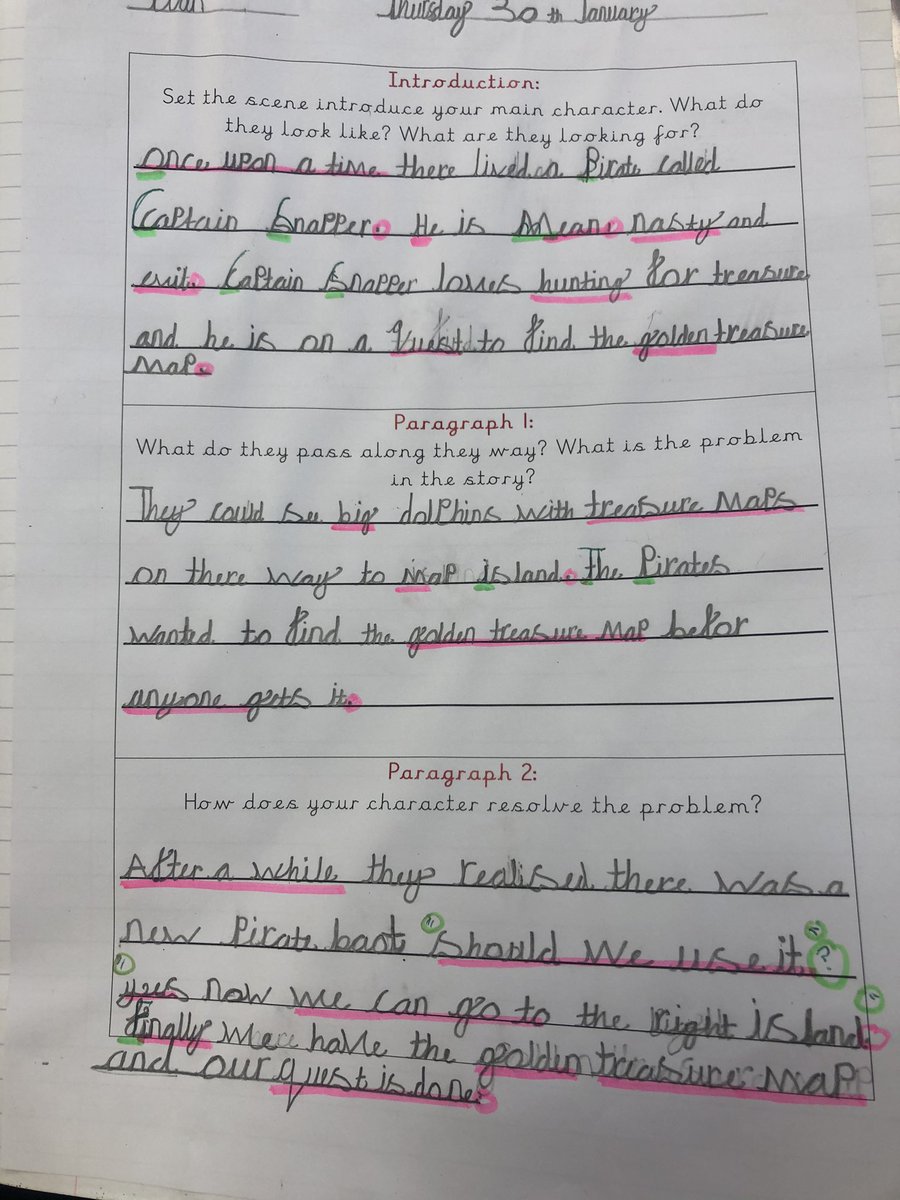 Thursday 30th January
Introduction:
Set the scene introduce your main character. What do
they look like? What are they looking for?
Once upon a time there lived a Pirate called
Captain Snapper. He is Mean, nasty and
evil. Captain Snapper loves hunting for treasure
and he is on a quest to find the golden treasure
Map.
Paragraph 1:
What do they pass along they way? What is the problem
in the story?
They could see big dolphins with treasure Maps
on there way to map island. The Pirates
wanted to find the golden treasure Map befor
anyone gets it.
Paragraph 2:
How does your character resolve the problem?
After a while they realised there was a
new Pirate baot "should we use it"?
"yes now we can go to the right island."
finally we have the golden treasure map
and our quest is done.